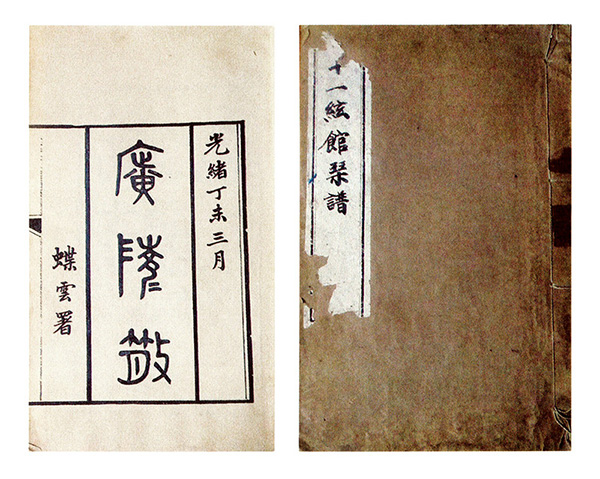 光緒丁未三月
廣陵散
蝶雲署
十一絃館琴譜